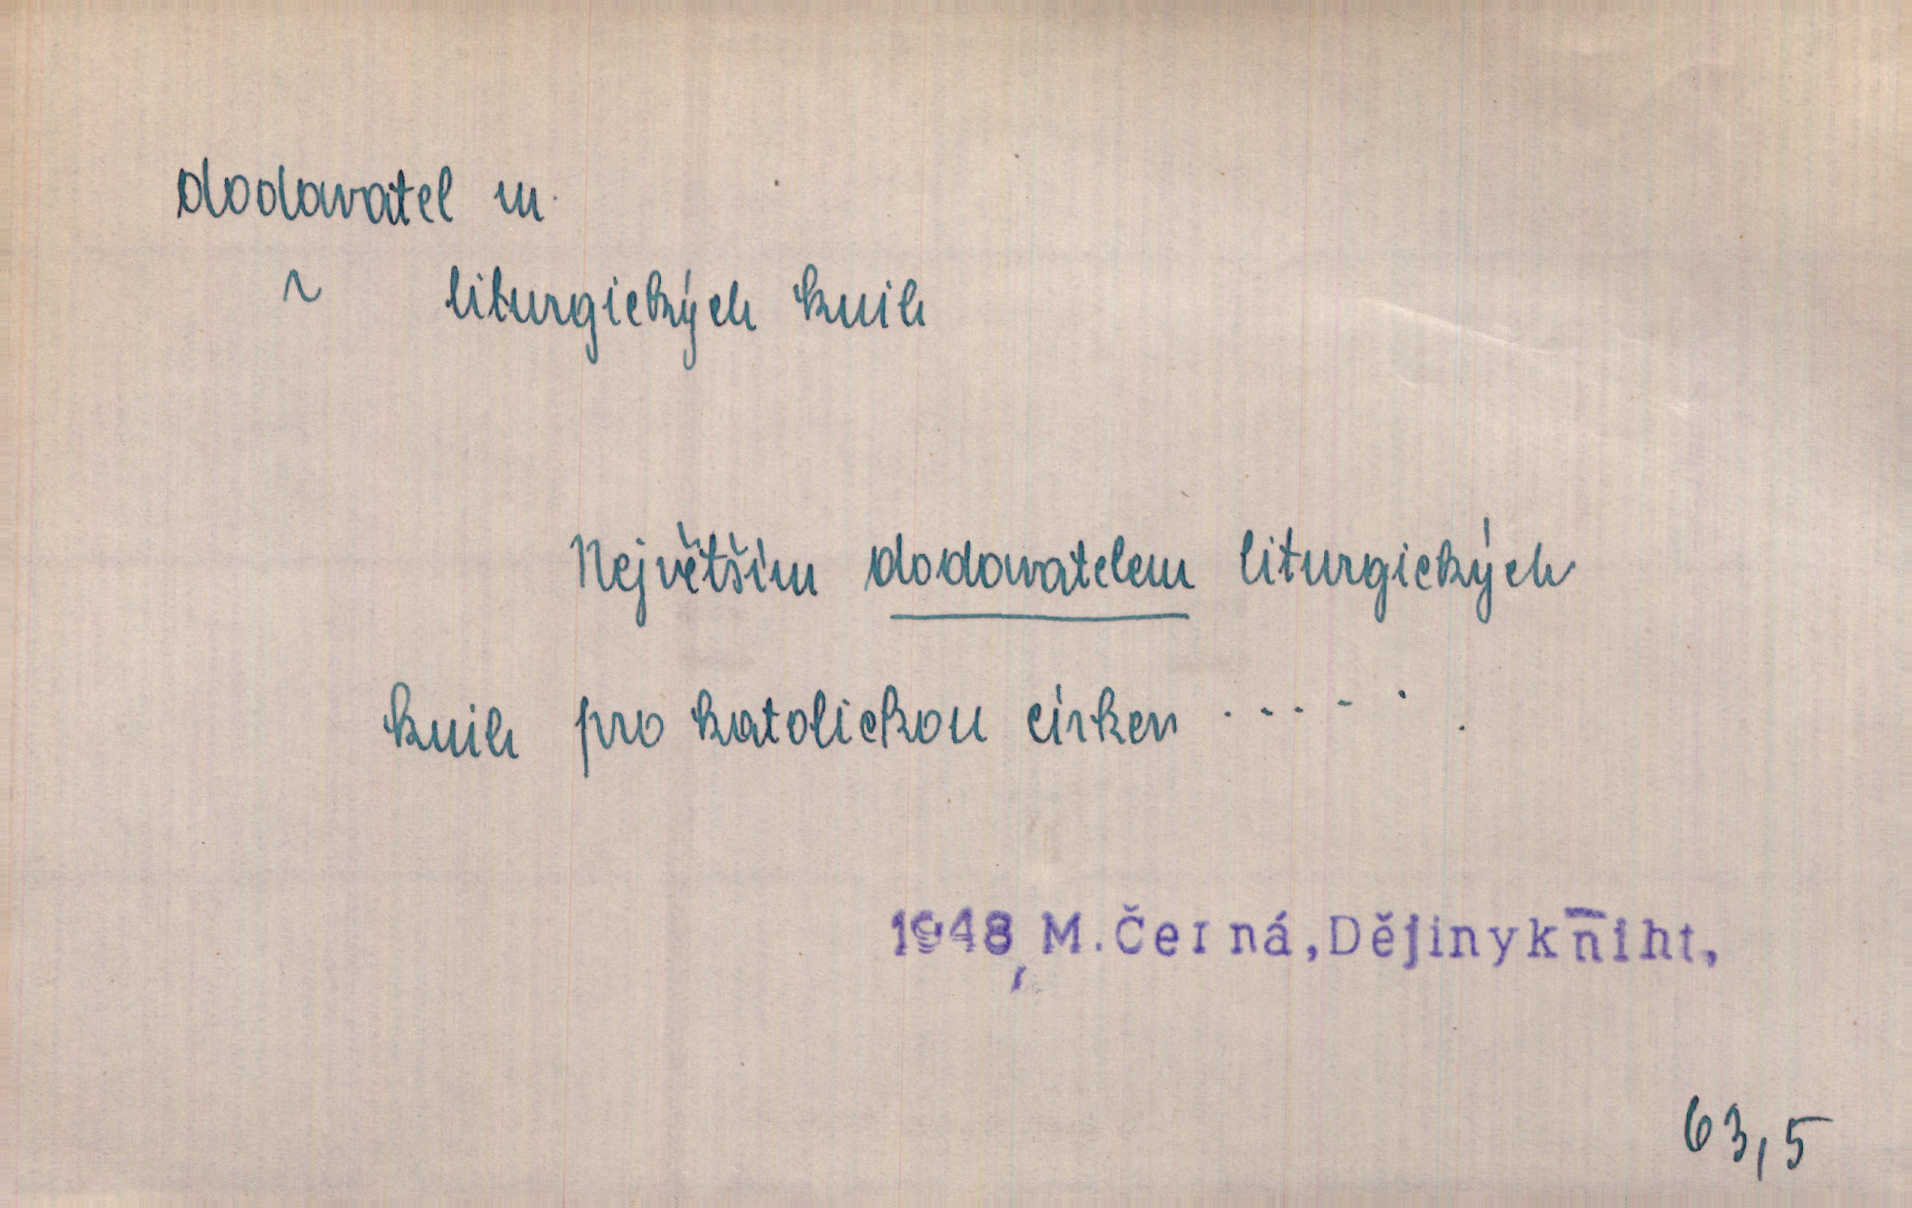 dodavatel m.
~ liturgických knih
Největším dodavatelem liturgických
knih pro katolickou církev .....
1948, M. Černá, Dějinykniht,
63,5